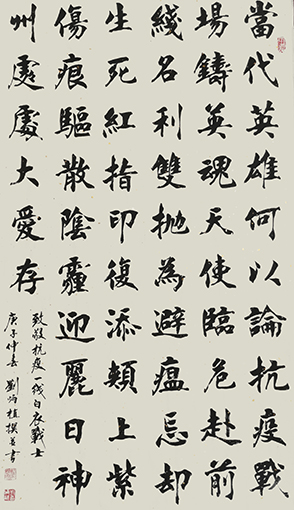 當代英雄何以論抗疫戰
場鑄英魂天使臨危赴前
綫名利雙拋為避瘟忌却
生死紅指印復添頰上紫
傷痕驅散陰霾迎麗日神
州處處大愛存
致敬抗疫一綫白衣戰士
庚子仲春劉炳植撰并書